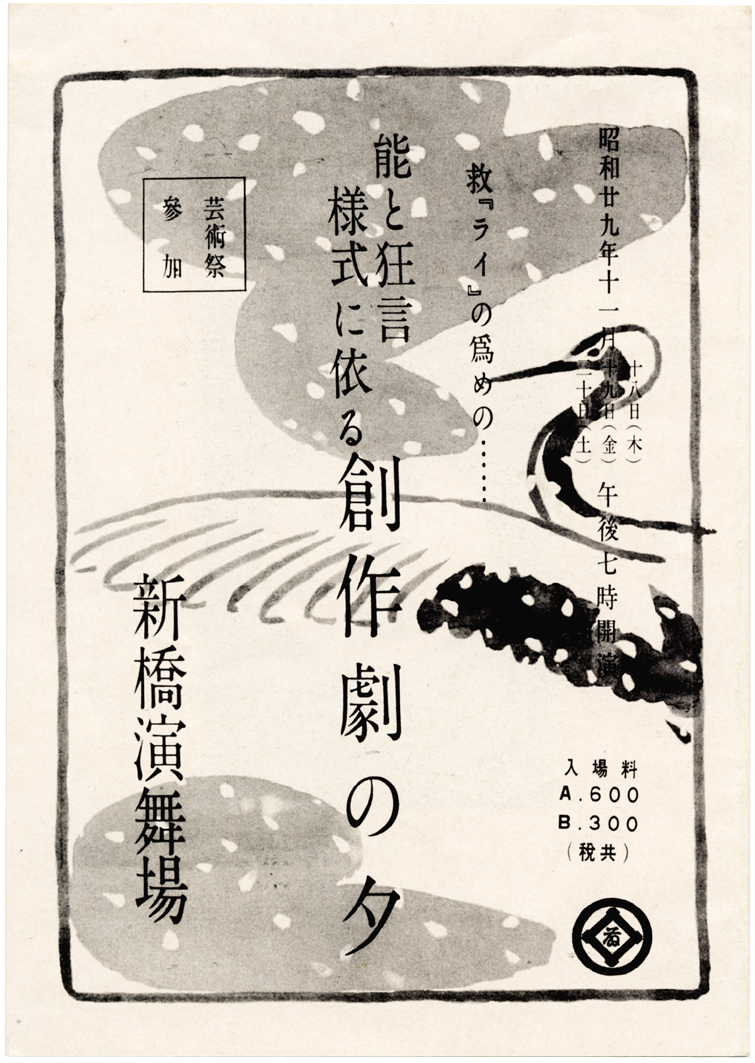 昭和廿九年十一月
十八日（木）
十九日（金）
二十日（土）
午後七時開演
救『ライ』の爲めの……
能と狂言
様式に依る
創作劇の夕
芸術祭
參加
新橋演舞場
入場料
A.600
B.300
（税共）